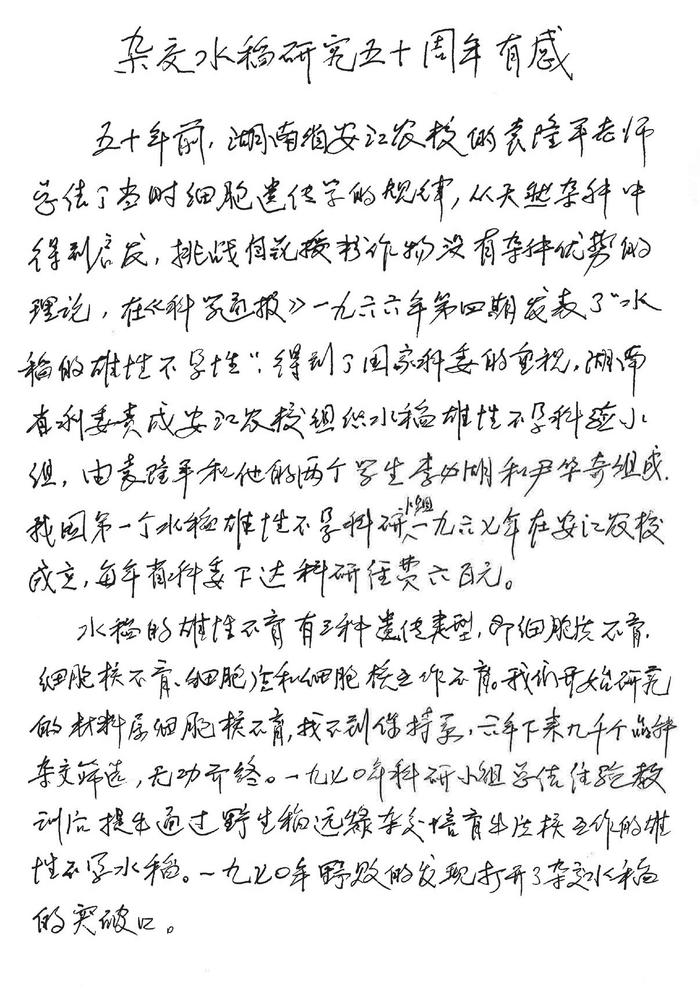 杂交水稻研究五十周年有感
五十年前，湖南省安江农校的袁隆平老师
总结了当时细胞遗传学的规律，从天然杂种中
得到启发，挑战自花授粉作物没有杂种优势的
理论，在《科学通报》一九六六年第四期发表了“水
稻的雄性不孕性”，得到了国家科委的重视，湖南
省科委责成安江农校组织水稻雄性不孕科研小
组，由袁隆平和他的两个学生李必湖和尹华奇组成．
我国第一个水稻雄性不孕科研小组一九六七年在安江农校
成立，每年省科委下达科研经费六百元。
水稻的雄性不育有三种遗传类型，即细胞质不育、
细胞核不育、细胞质和细胞核互作不育。我们开始研究
的材料属细胞核不育，找不到保持系，六年下来九千个品种
杂交筛选，无功而终。一九七〇年科研小组总结经验教
训后提出通过野生稻远缘杂交培育出质核互作的雄
性不孕水稻。一九七〇年野败的发现打开了杂交水稻
的突破口。